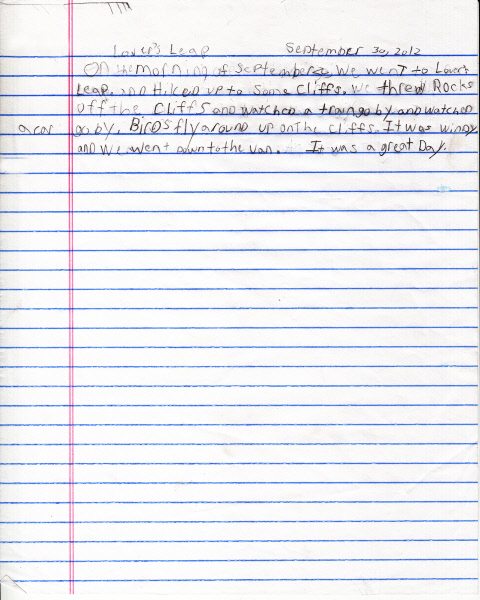 Lover's Leap September 30, 2012
On the morning of September we went to Lover's
Leap. and Hiked up to Some Cliffs. we threw Rocks
off the Cliffs and watched a train go by and watched
a car go by. Birds fly around up on the cliffs. It was windy
and we went down to the van. It was a great Day.